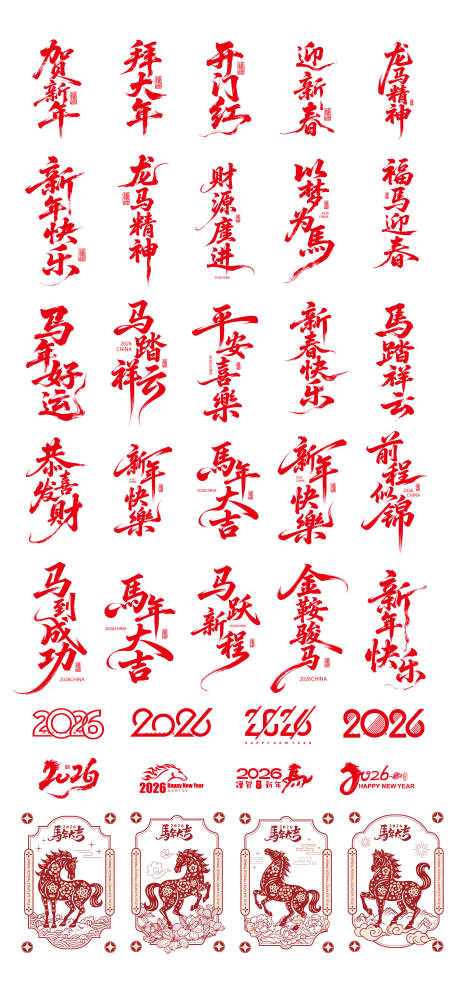 贺新年
拜大年
开门红
迎新春
龙马精神
新年快乐
龙马精神
财源廣进
2026CHINA
以梦为馬
2026
CHINA
福馬迎春
马年好运
马踏祥云
2026
CHINA
平安喜樂
2026CHINA
新春快乐
馬踏祥云
恭喜发财
新年快樂
馬年大吉
2026CHINA
新年快樂
前程似锦
2026
CHINA
马到成功
2026CHINA
馬年大吉
2026CHINA
马跃新程
2026CHINA
金鞍骏马
2026CHINA
新年快乐
2026
2026
2026
HAPPY NEW YEAR
2026
2026
2026 Happy New Year
2026馬
謹賀新年
2026
HAPPY NEW YEAR
2026
馬年大吉
2026
馬年大吉
2026
馬年大吉
2026
馬年大吉